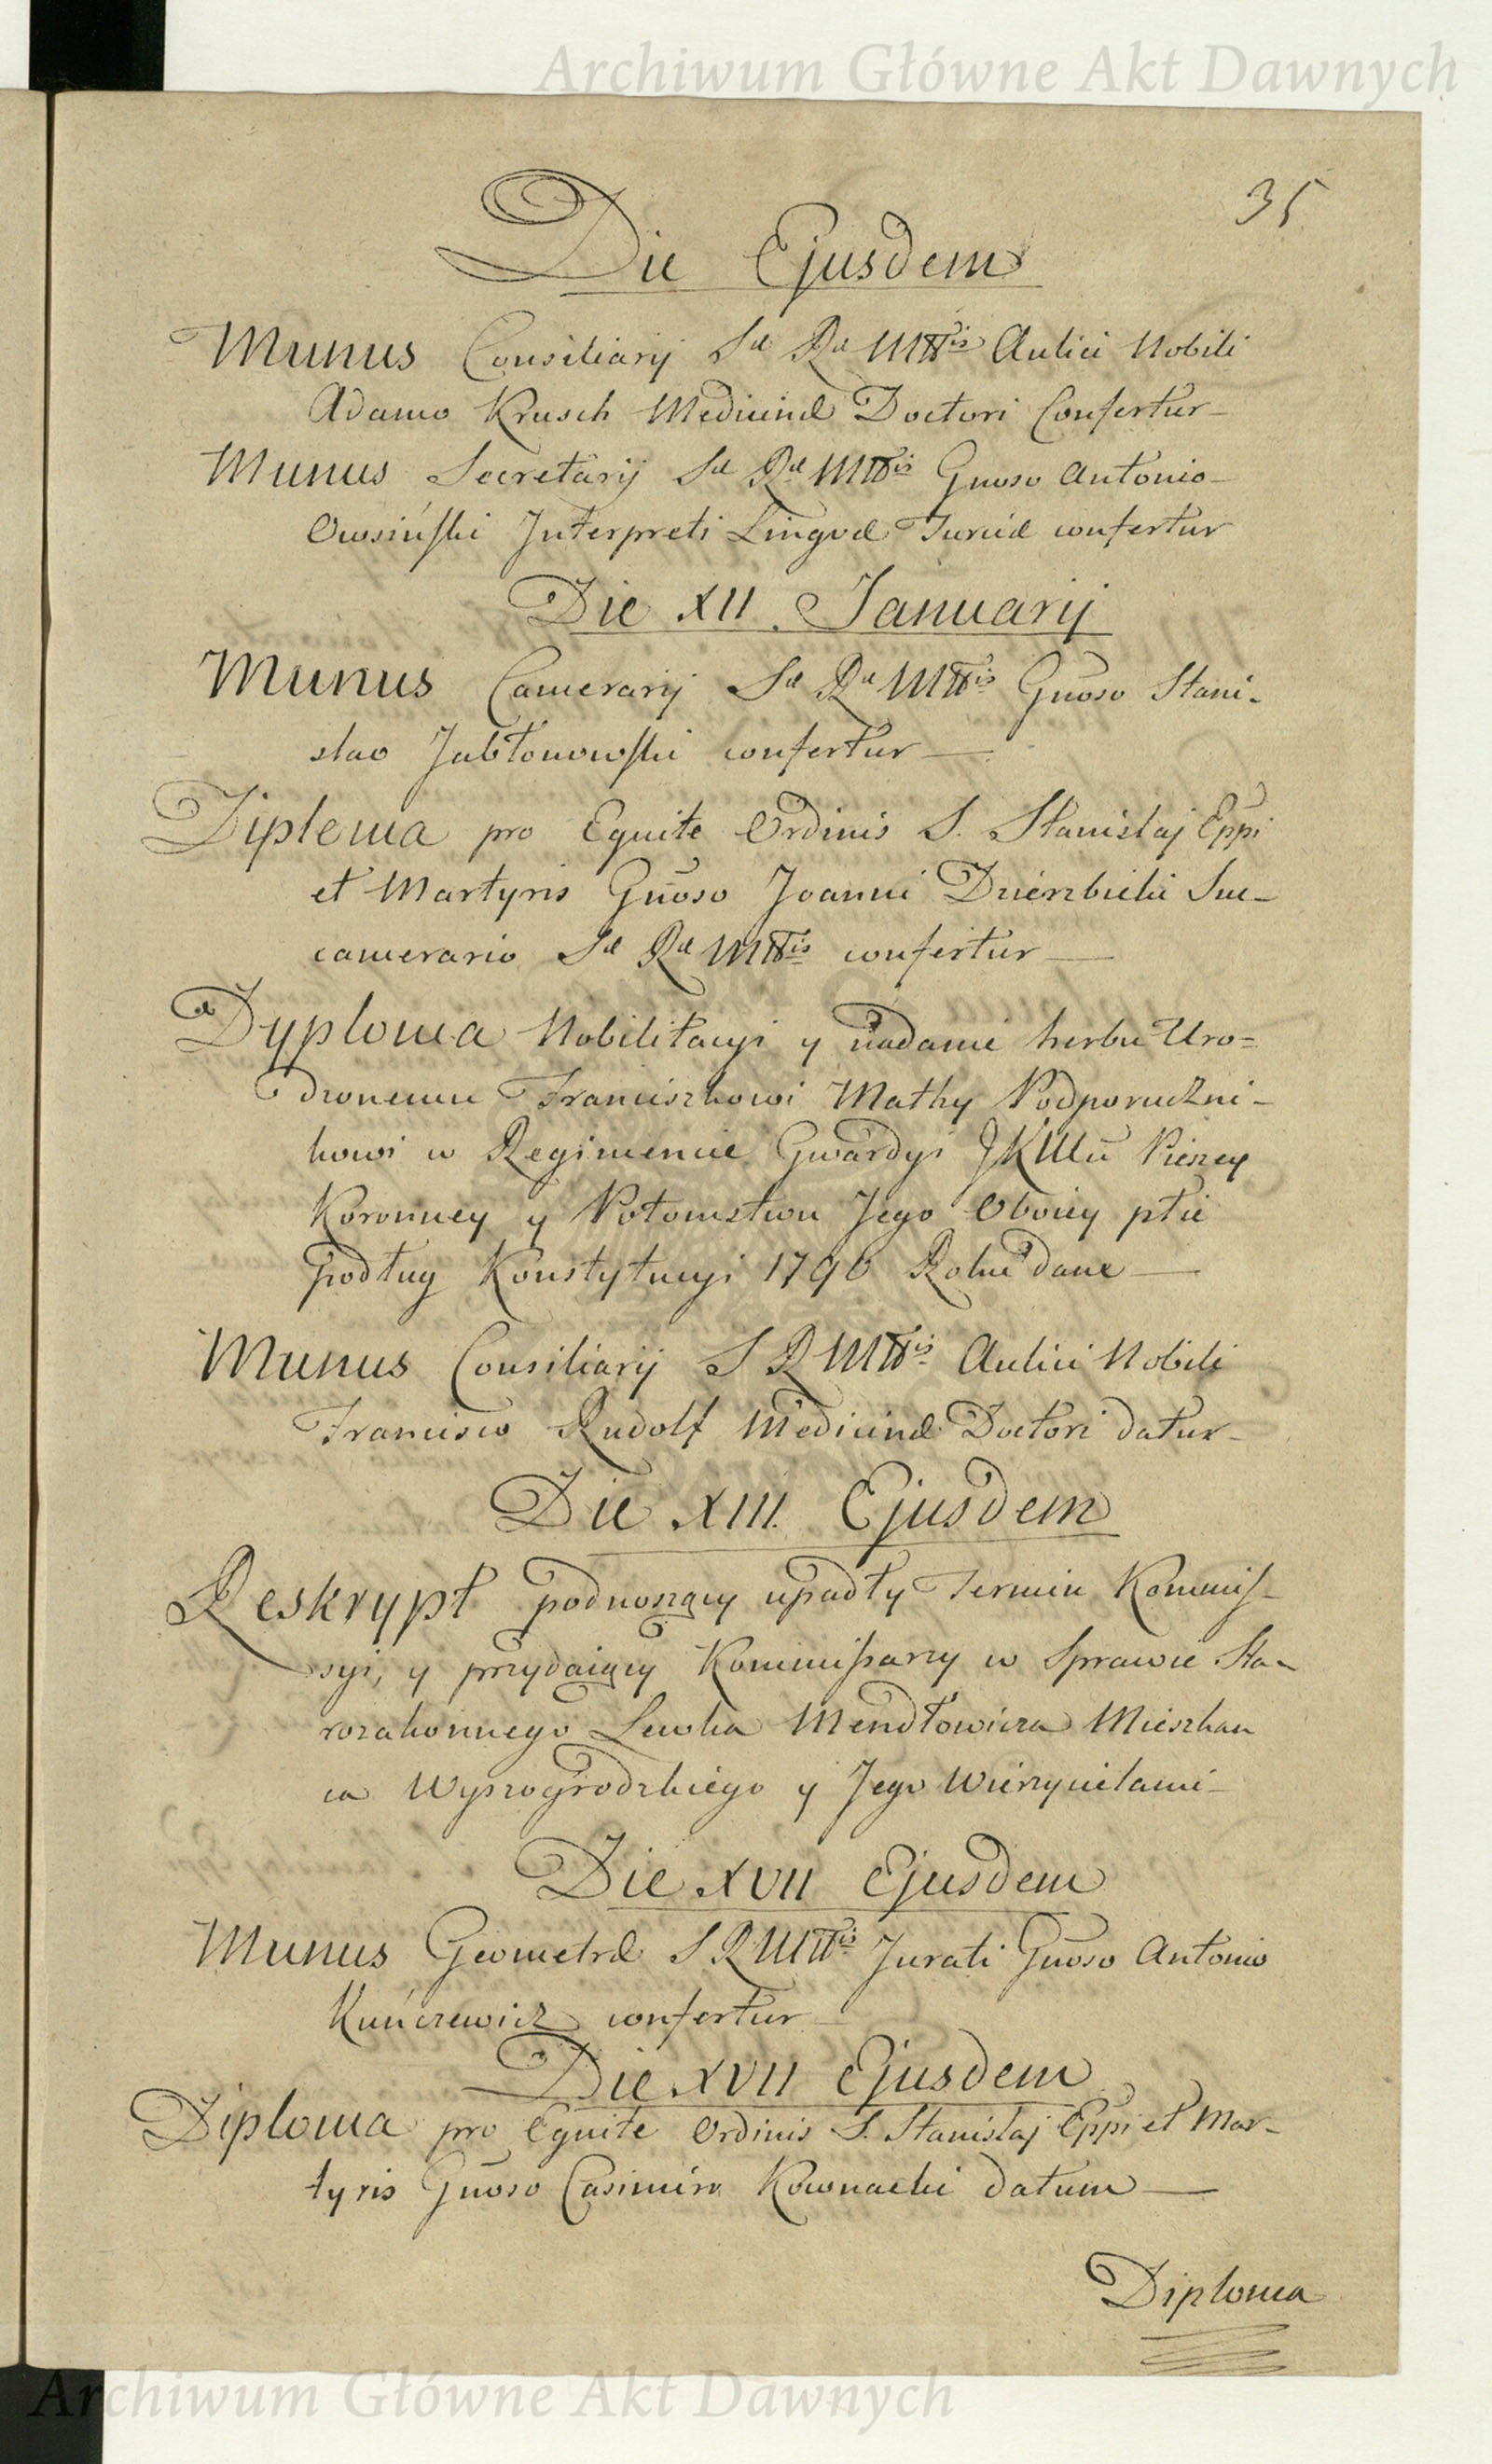 Archiwum Główne Akt Dawnych
35
Die Ejusdem
Munus Consiliarij Sæ Ræ Mttis Aulici Nobili
Adamo Krusch Medicinæ Doctori Confertur
Munus Secretarij Sæ Ræ Mttis Gnoso Antonio
Owsiński Interpreti Lingvæ Turciæ confertur
Die XII Januarij
Munus Camerarij Sæ Ræ Mttis Gnoso Stani-
slao Jabłonowski confertur
Diploma pro Equite Ordinis S. Stanislaj Eppi
et Martyris Gnoso Joanni Dzierzbicki Suc-
camerario Sæ Ræ Mttis confertur
Dyploma Nobilitacyi y nadanie herbu Uro=
dzonemu Franciszkowi Mathy Podporuczni-
kowi w Regimencie Gwardyi JKMci Pieszey
Koronney y Potomstwu Jego Oboiey płci
podług Konstytucyi 1790 Roku dane
Munus Consiliarij S R Mttis Aulici Nobili
Francisco Rudolf Medicinæ Doctori datur
Die XIII Ejusdem
Reskrypt podnoszący upadły Termin Kommis-
syi, y przydaiący Kommissarzy w Sprawie Sta-
rozakonnego Lewka Mendłowicza Mieszkan
ca Wyszogrodzkiego y Jego Wierzycielami
Die XVII Ejusdem
Munus Geometræ S R Mttis Jurati Gnoso Antonio
Kuńczewicz confertur
Die XVII Ejusdem
Diploma pro Equite Ordinis S. Stanislaj Eppi et Mar-
tyris Gnoso Casimiro Kownacki datum
Diploma
Archiwum Główne Akt Dawnych